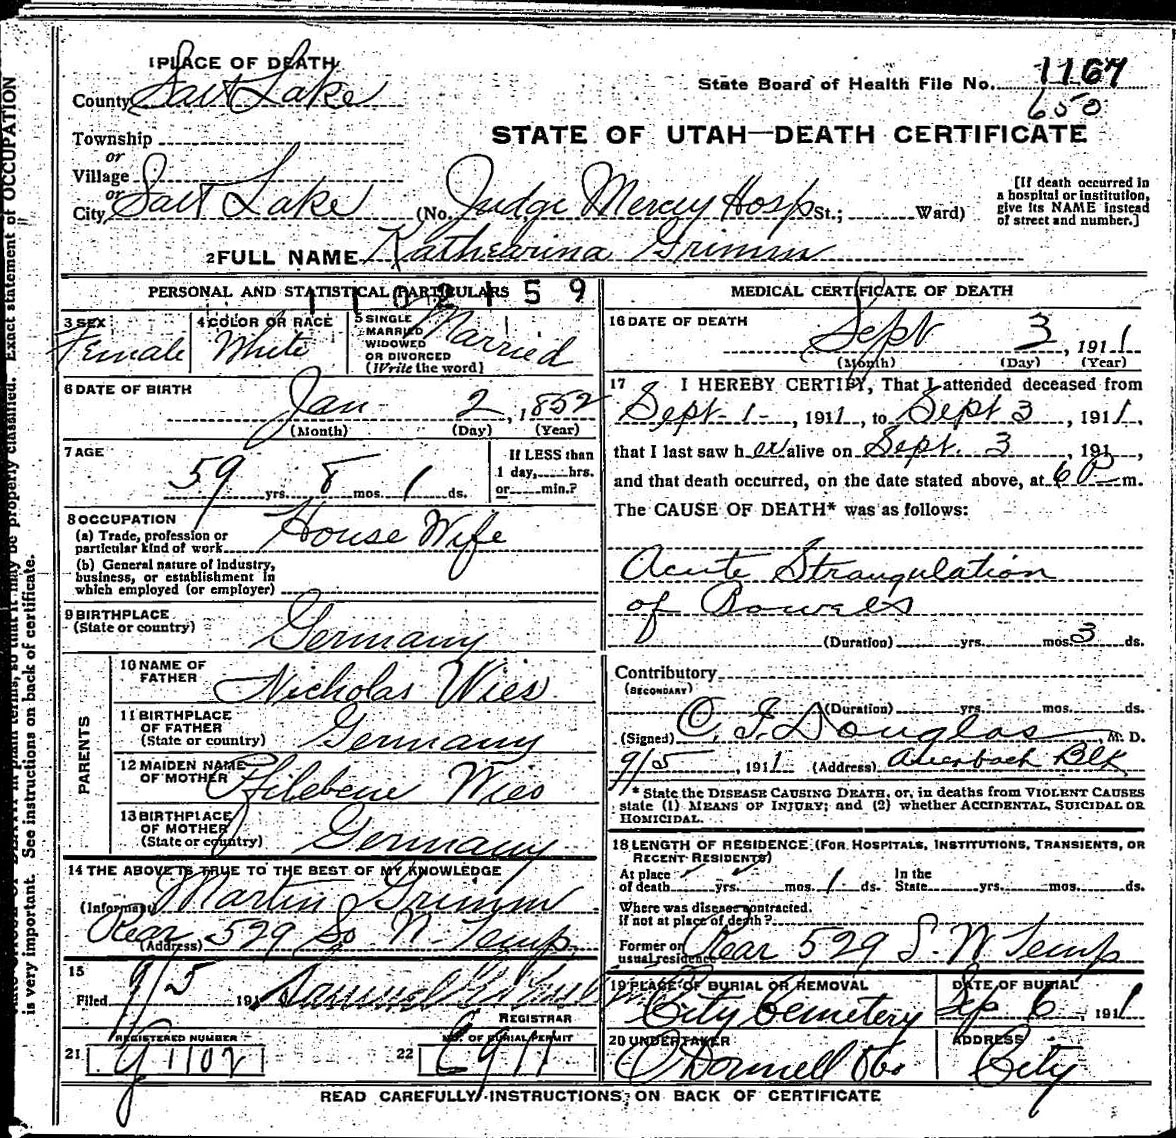 1 PLACE OF DEATH
County Salt Lake
State Board of Health File No. 1167
650
Township
or
Village
or
City, Salt Lake (No. Judge Mercy Hosp St.; Ward)
STATE OF UTAH—DEATH CERTIFICATE
[If death occurred in a hospital or institution, give its NAME instead of street and number.]
2 FULL NAME Kathearina Grimm
PERSONAL AND STATISTICAL PARTICULARS
1102159
3 SEX Female
4 COLOR OR RACE White
5 SINGLE MARRIED WIDOWED OR DIVORCED (Write the word) Married
6 DATE OF BIRTH Jan 2, 1852
(Month) (Day) (Year)
7 AGE 59 yrs. 8 mos. 1 ds.
If LESS than
1 day, hrs.
or min.?
8 OCCUPATION
(a) Trade, profession or
particular kind of work House Wife
(b) General nature of industry,
business, or establishment in
which employed (or employer)
9 BIRTHPLACE
(State or country) Germany
PARENTS
10 NAME OF FATHER Nicholas Wies
11 BIRTHPLACE OF FATHER (State or country) Germany
12 MAIDEN NAME OF MOTHER Wies
13 BIRTHPLACE OF MOTHER (State or country) Germany
14 THE ABOVE IS TRUE TO THE BEST OF MY KNOWLEDGE
(Informant) Martin Grimm
(Address) Rear 529 So W. Temp.
15
Filed 9/5 191 Samuel
REGISTRAR
REGISTERED NUMBER
21 G 1102
NO. OF BURIAL PERMIT
22 C 911
MEDICAL CERTIFICATE OF DEATH
16 DATE OF DEATH
Sept 3, 1911
(Month) (Day) (Year)
17 I HEREBY CERTIFY, That I attended deceased from
Sept-1-, 1911, to Sept 3, 1911,
that I last saw her alive on Sept. 3, 191 ,
and that death occurred, on the date stated above, at 6 P m.
The CAUSE OF DEATH* was as follows:
Acute Strangulation
of Bowels
(Duration) yrs. mos. 3 ds.
Contributory
(SECONDARY)
(Duration) yrs. mos. ds.
(Signed) C. F. Douglas, M. D.
9/5, 1911 (Address) Auerbach Blk
* State the DISEASE CAUSING DEATH, or, in deaths from VIOLENT CAUSES
state (1) MEANS OF INJURY; and (2) whether ACCIDENTAL, SUICIDAL OR
HOMICIDAL.
18 LENGTH OF RESIDENCE (FOR HOSPITALS, INSTITUTIONS, TRANSIENTS, OR
RECENT RESIDENTS)
At place of death yrs. mos. 1 ds. In the State yrs. mos. ds.
Where was disease contracted,
if not at place of death?
Former or
usual residence Rear 529 S. W Temp
19 PLACE OF BURIAL OR REMOVAL
City Cemetery
DATE OF BURIAL
Sep 6, 1911
20 UNDERTAKER
O'Donnell & Co.
ADDRESS
City
READ CAREFULLY INSTRUCTIONS ON BACK OF CERTIFICATE
properly classified. Exact statement of OCCUPATION
is very important. See instructions on back of certificate.